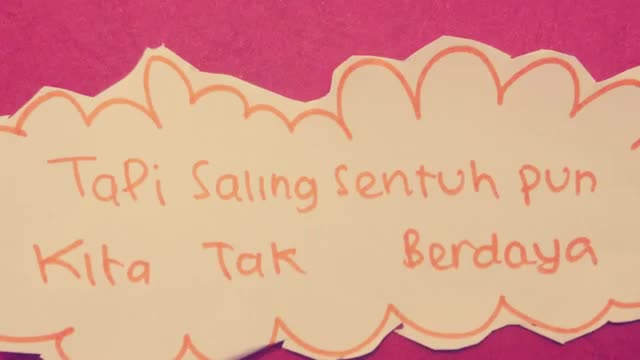 Tapi saling sentuh pun
Kita Tak Berdaya